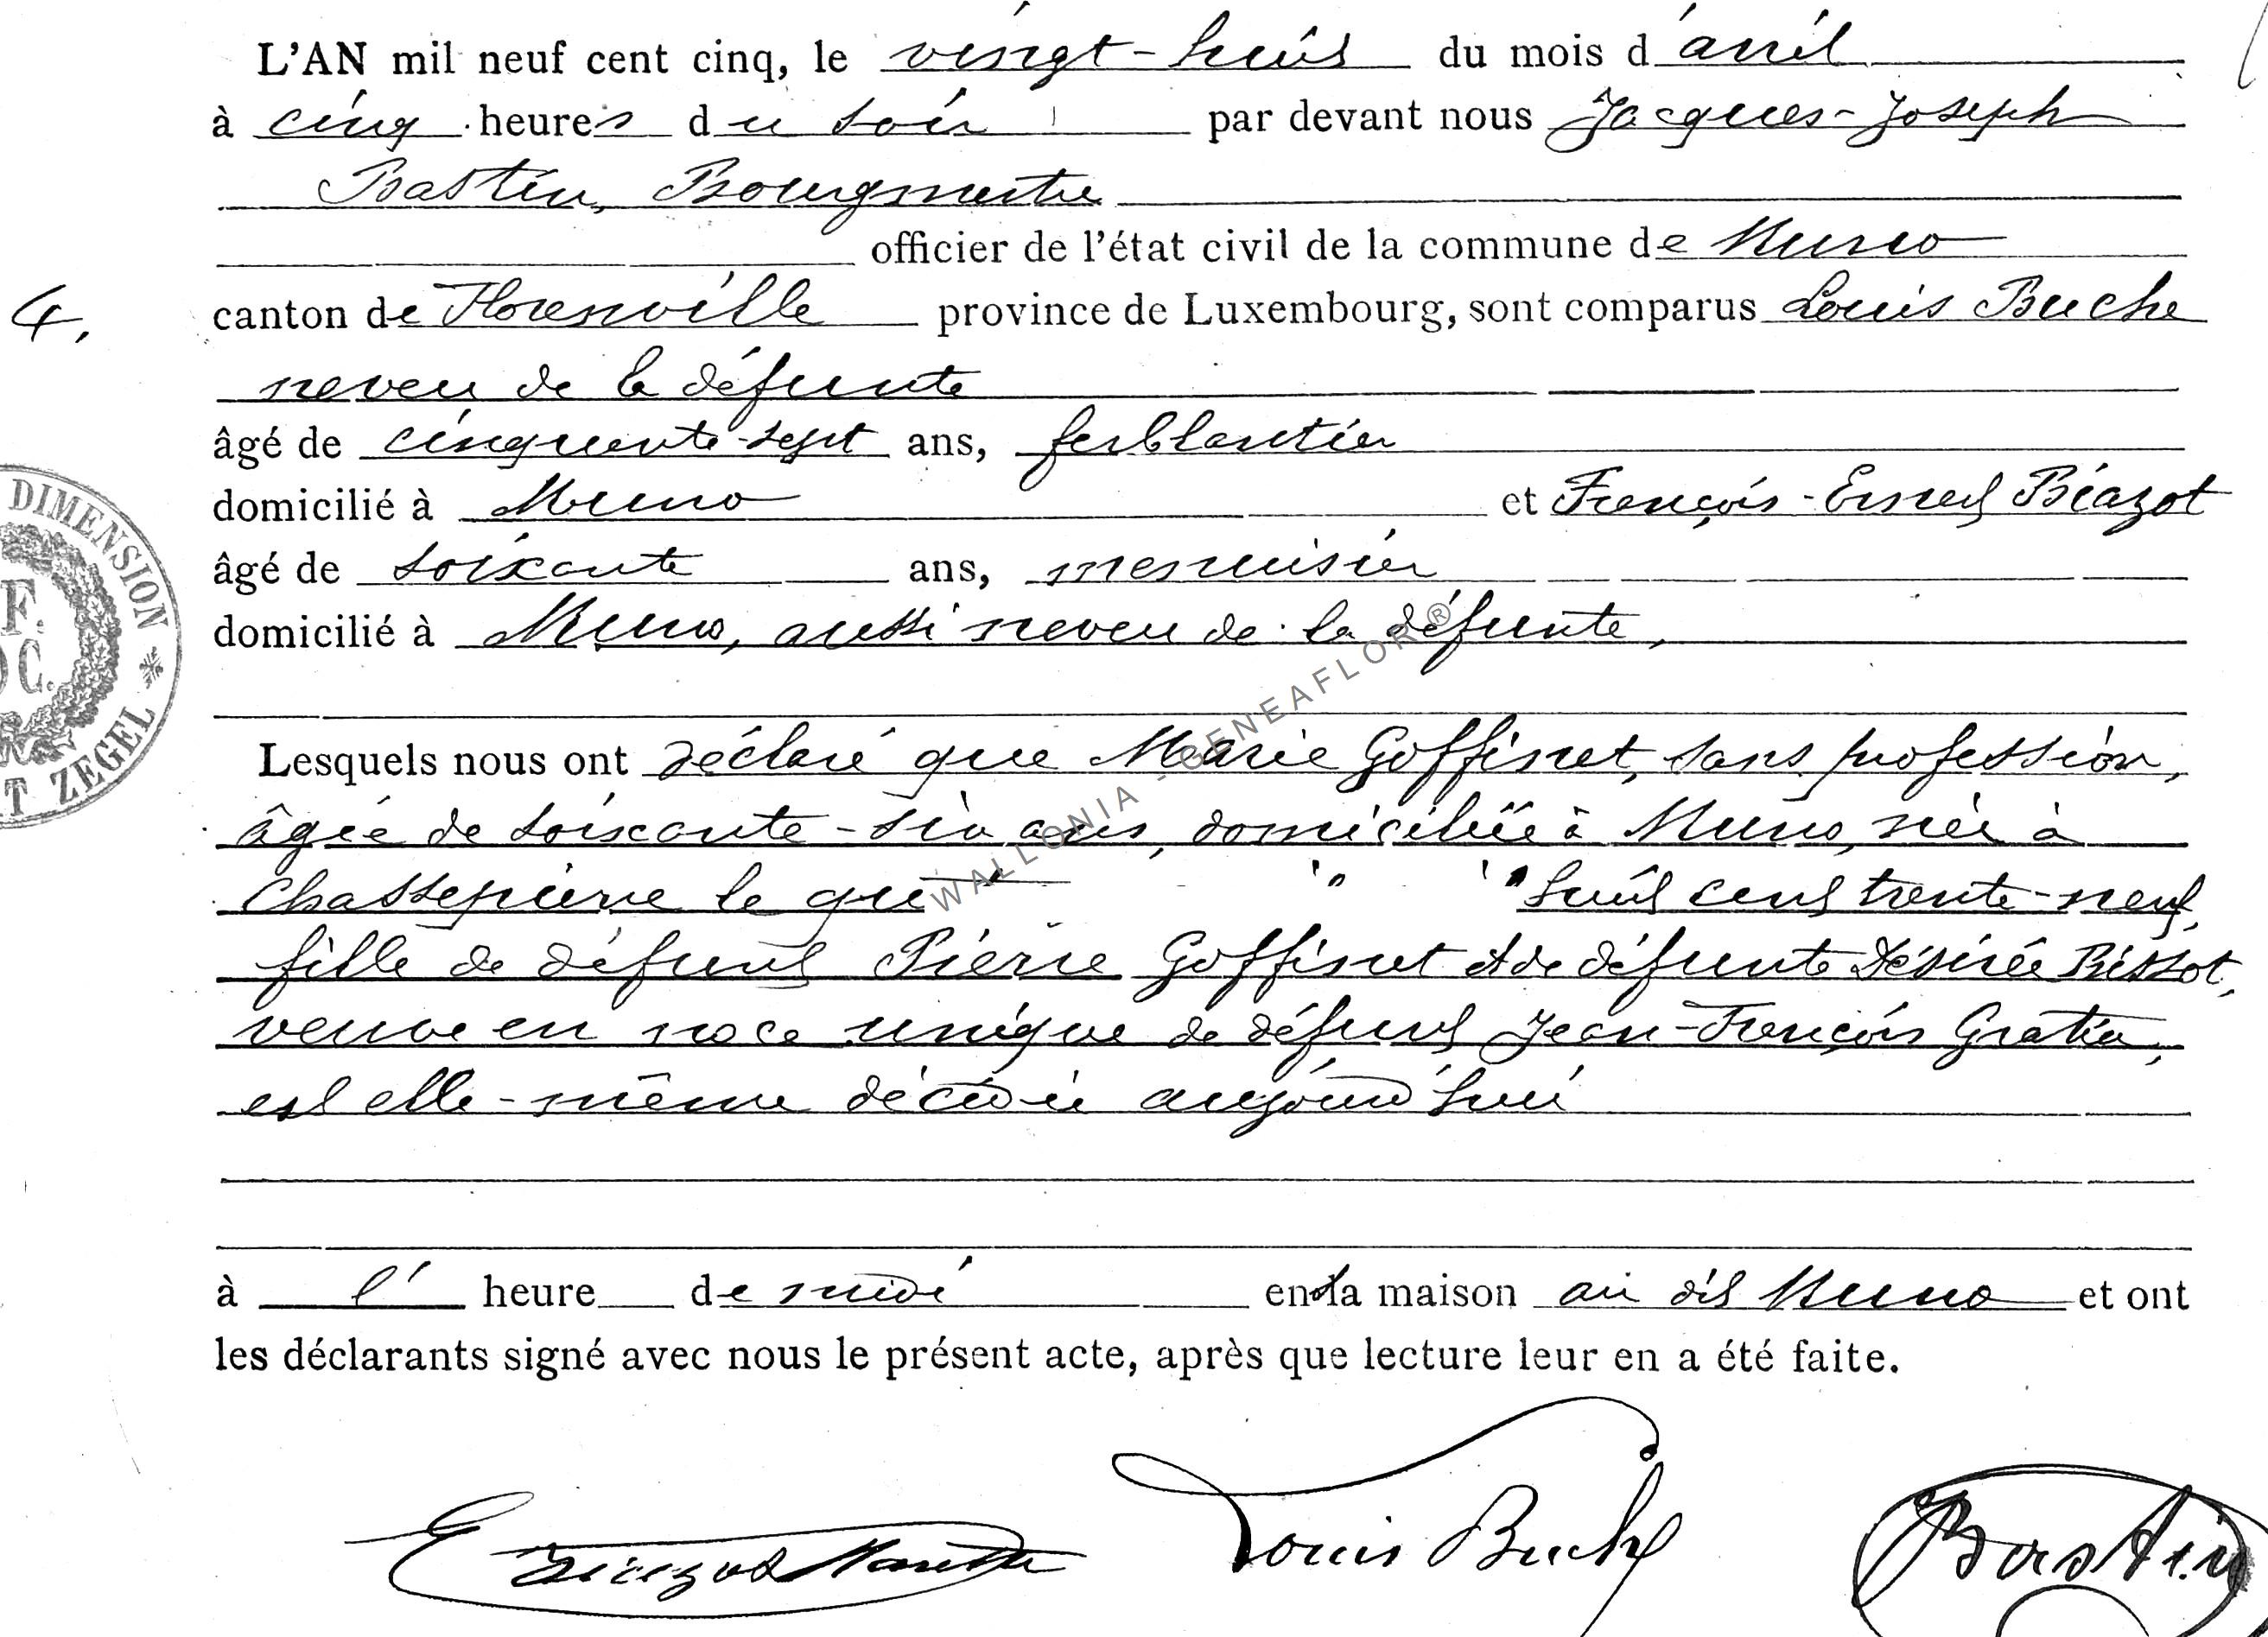 L'AN mil neuf cent cinq, le vingt-huit du mois d'avril
à cinq heures du soir par devant nous Jacques-Joseph
Bastin, Bourgmestre
officier de l'état civil de la commune de Muno
4. canton de Florenville province de Luxembourg, sont comparus Louis Buche
neveu de la défunte
âgé de cinquante-sept ans, ferblantier
domicilié à Muno et François-Ernest Biazot
âgé de soixante ans, menuisier
domicilié à Muno, aussi neveu de la défunte,
DIMENSION
F.
C.
T ZEGEL
Lesquels nous ont déclaré que Marie Goffinet, sans profession,
âgée de soixante-six ans, domiciliée à Muno, née à
Chassepierre le huit cent trente-neuf,
fille de défunt Pierre Goffinet et de défunte Désirée Bissot,
veuve en noce unique de défunt Jean-François Gratia,
est elle-même décédée aujourd'hui
à l' heure de midi en la maison au dit Muno et ont
les déclarants signé avec nous le présent acte, après que lecture leur en a été faite.
Louis Buche Bastin
WALLONIA - GENEAFLOR®